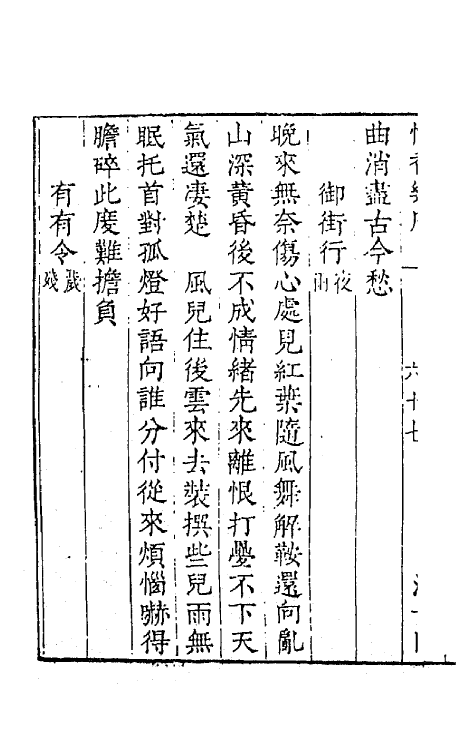 六十七
曲消盡古今愁
御街行夜雨
晚來無奈傷心處見紅葉隨風舞解鞍還向亂
山深黃昏後不成情緒先來離恨打疊不下天
氣還淒楚　風兒住後雲來去裝撰些兒雨無
眠托首對孤燈好語向誰分付從來煩惱嚇得
膽碎此度難擔負
有有令歲殘